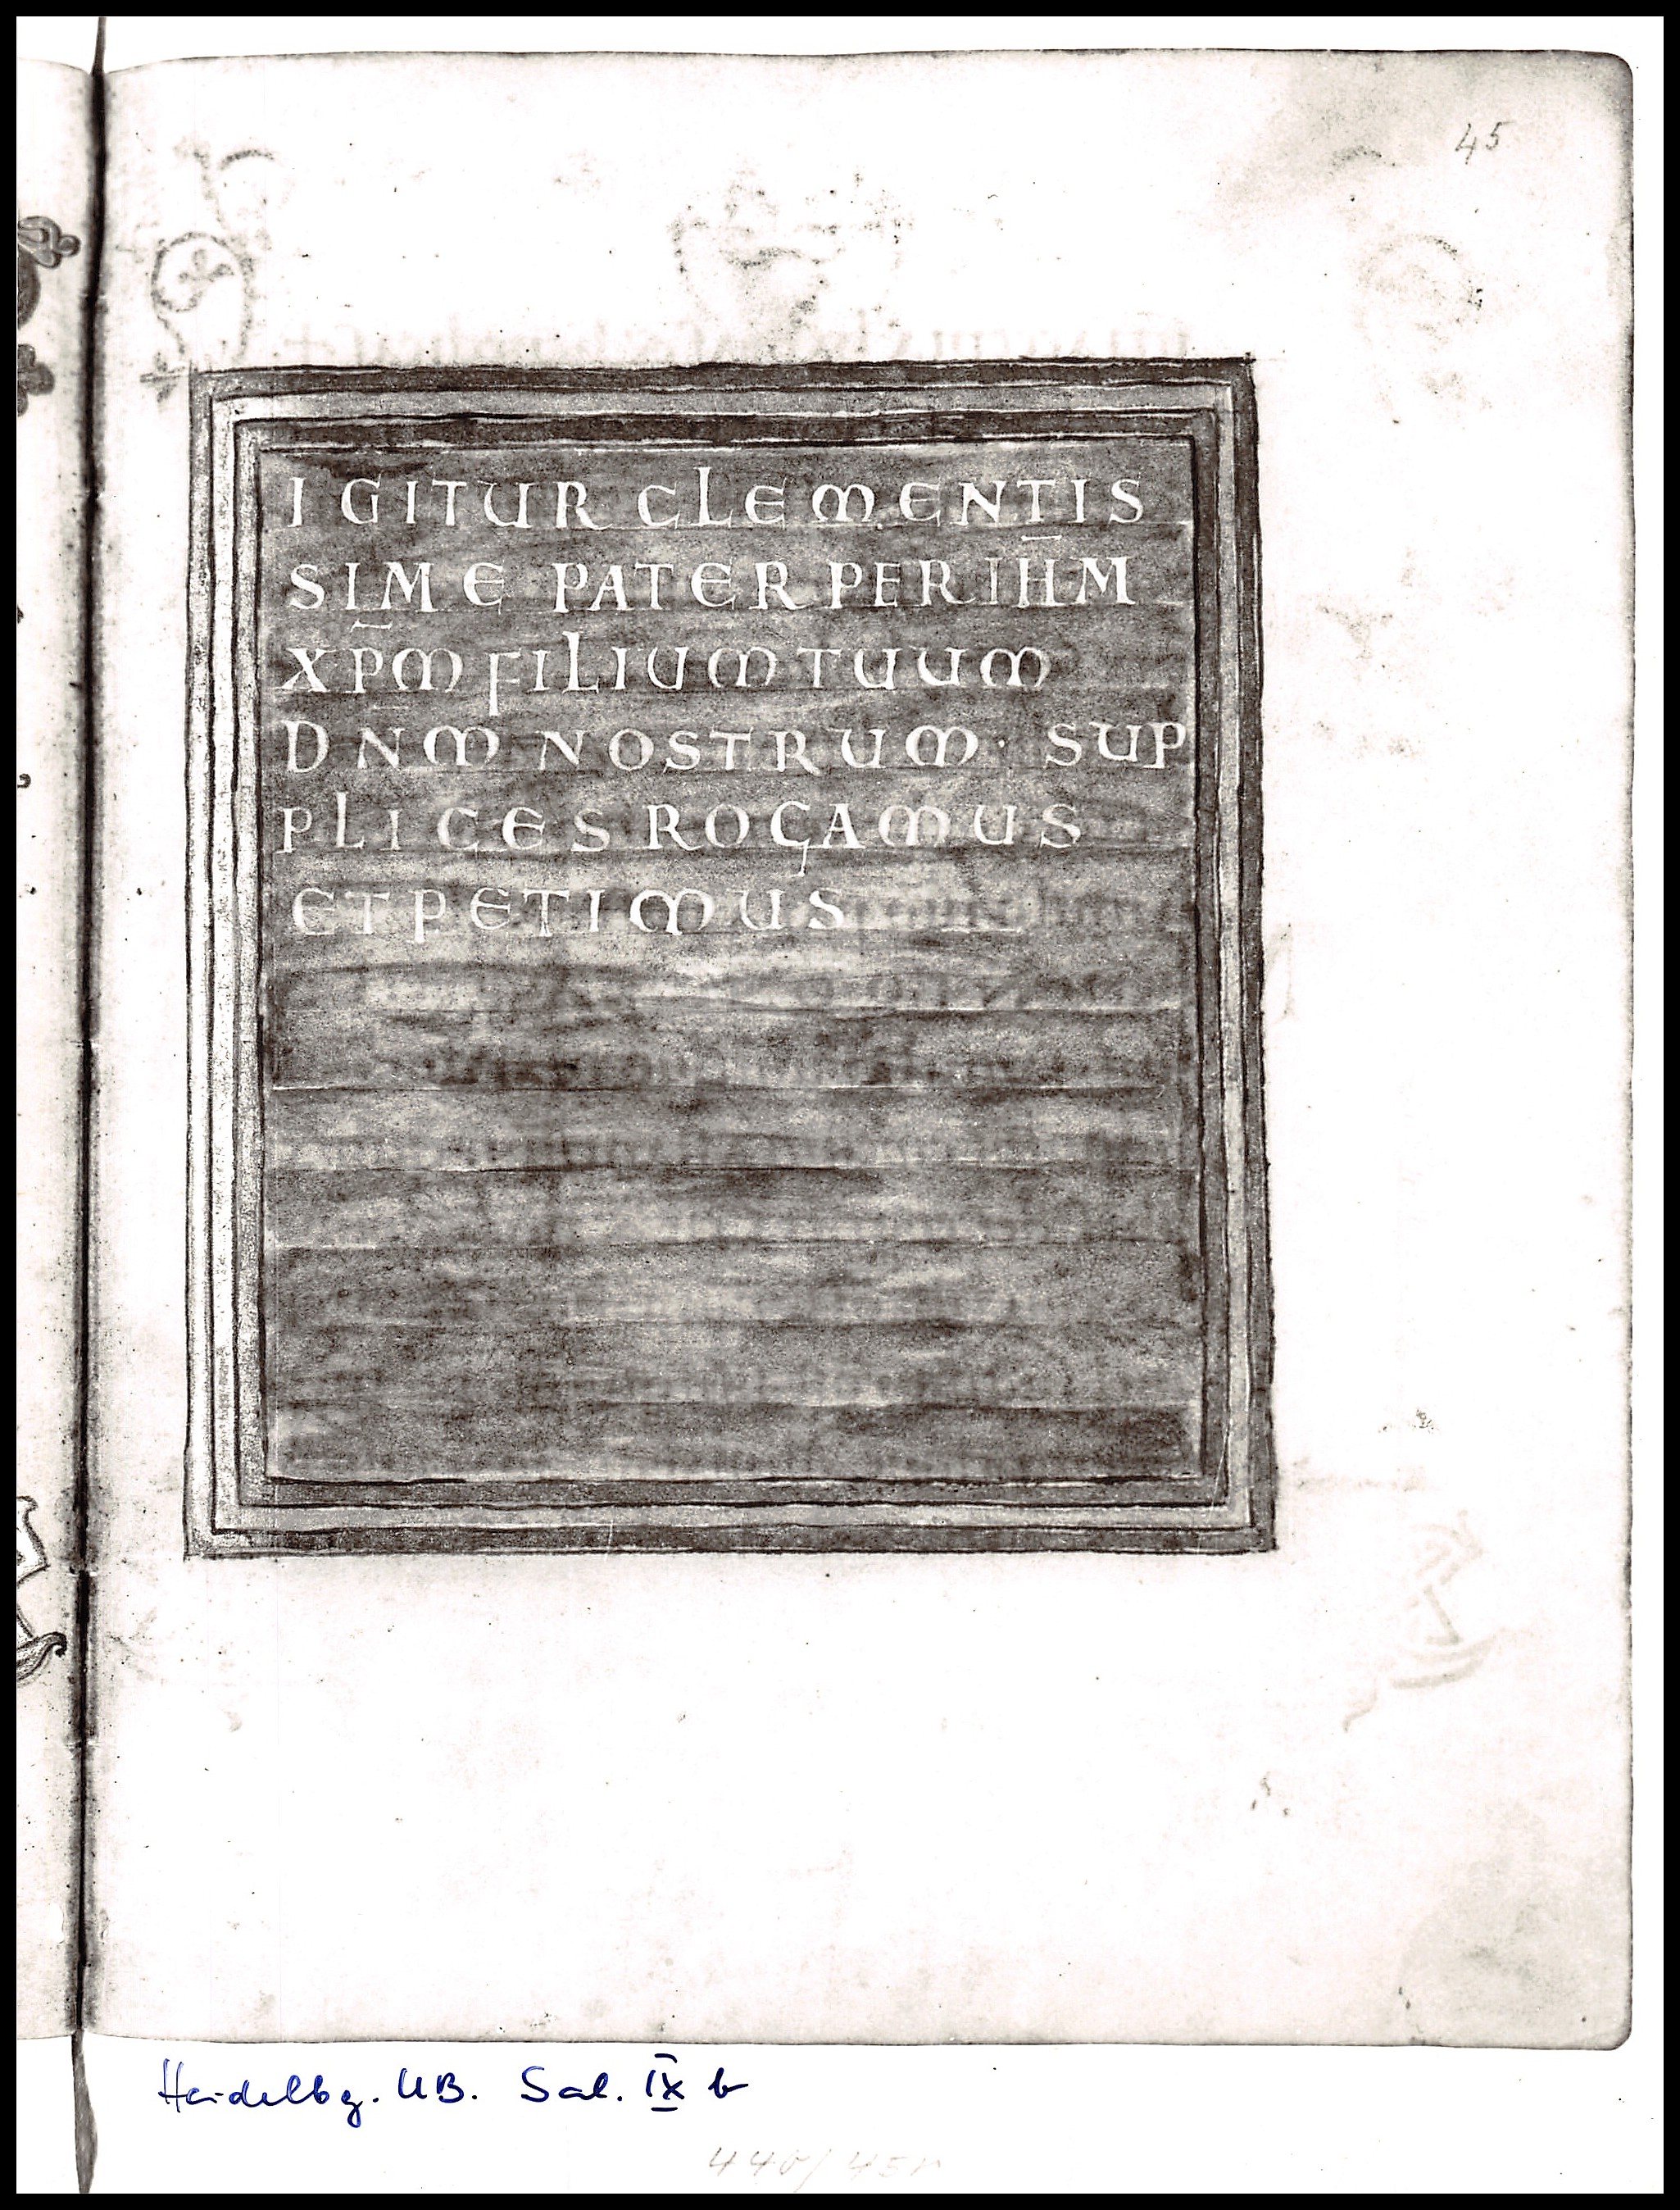 45
IGITUR CLEMENTIS
SIME PATER PER IH̅M
XP̅M FILIUM TUUM
DN̅M NOSTRUM · SUP
PLICES ROGAMUS
ET PETIMUS
Heidelbg. UB. Sal. IX b
44v/45r